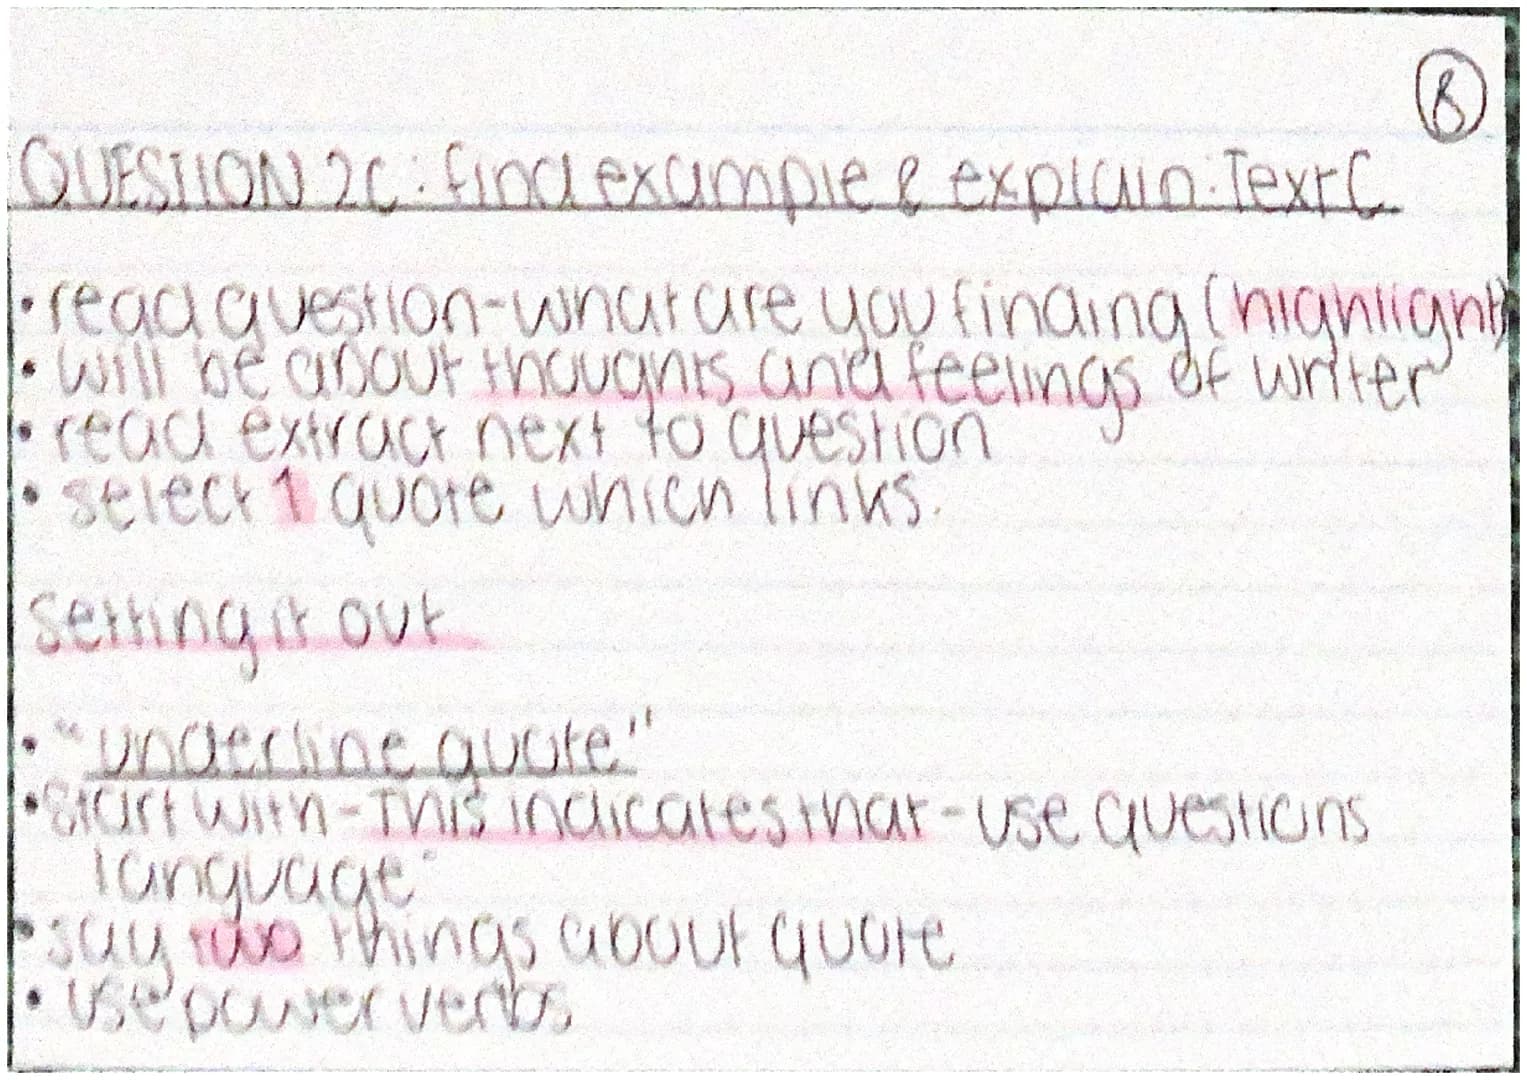 8
QUESTION 2C: find example & explain. Text C
• read question - what are you finding (highlight)
• will be about thoughts and feelings of writer
• read extract next to question
• select 1 quote which links.
setting it out
• "underline quote"
• start with - This indicates that - use questions
language.
• say two things about quote
• use power verbs